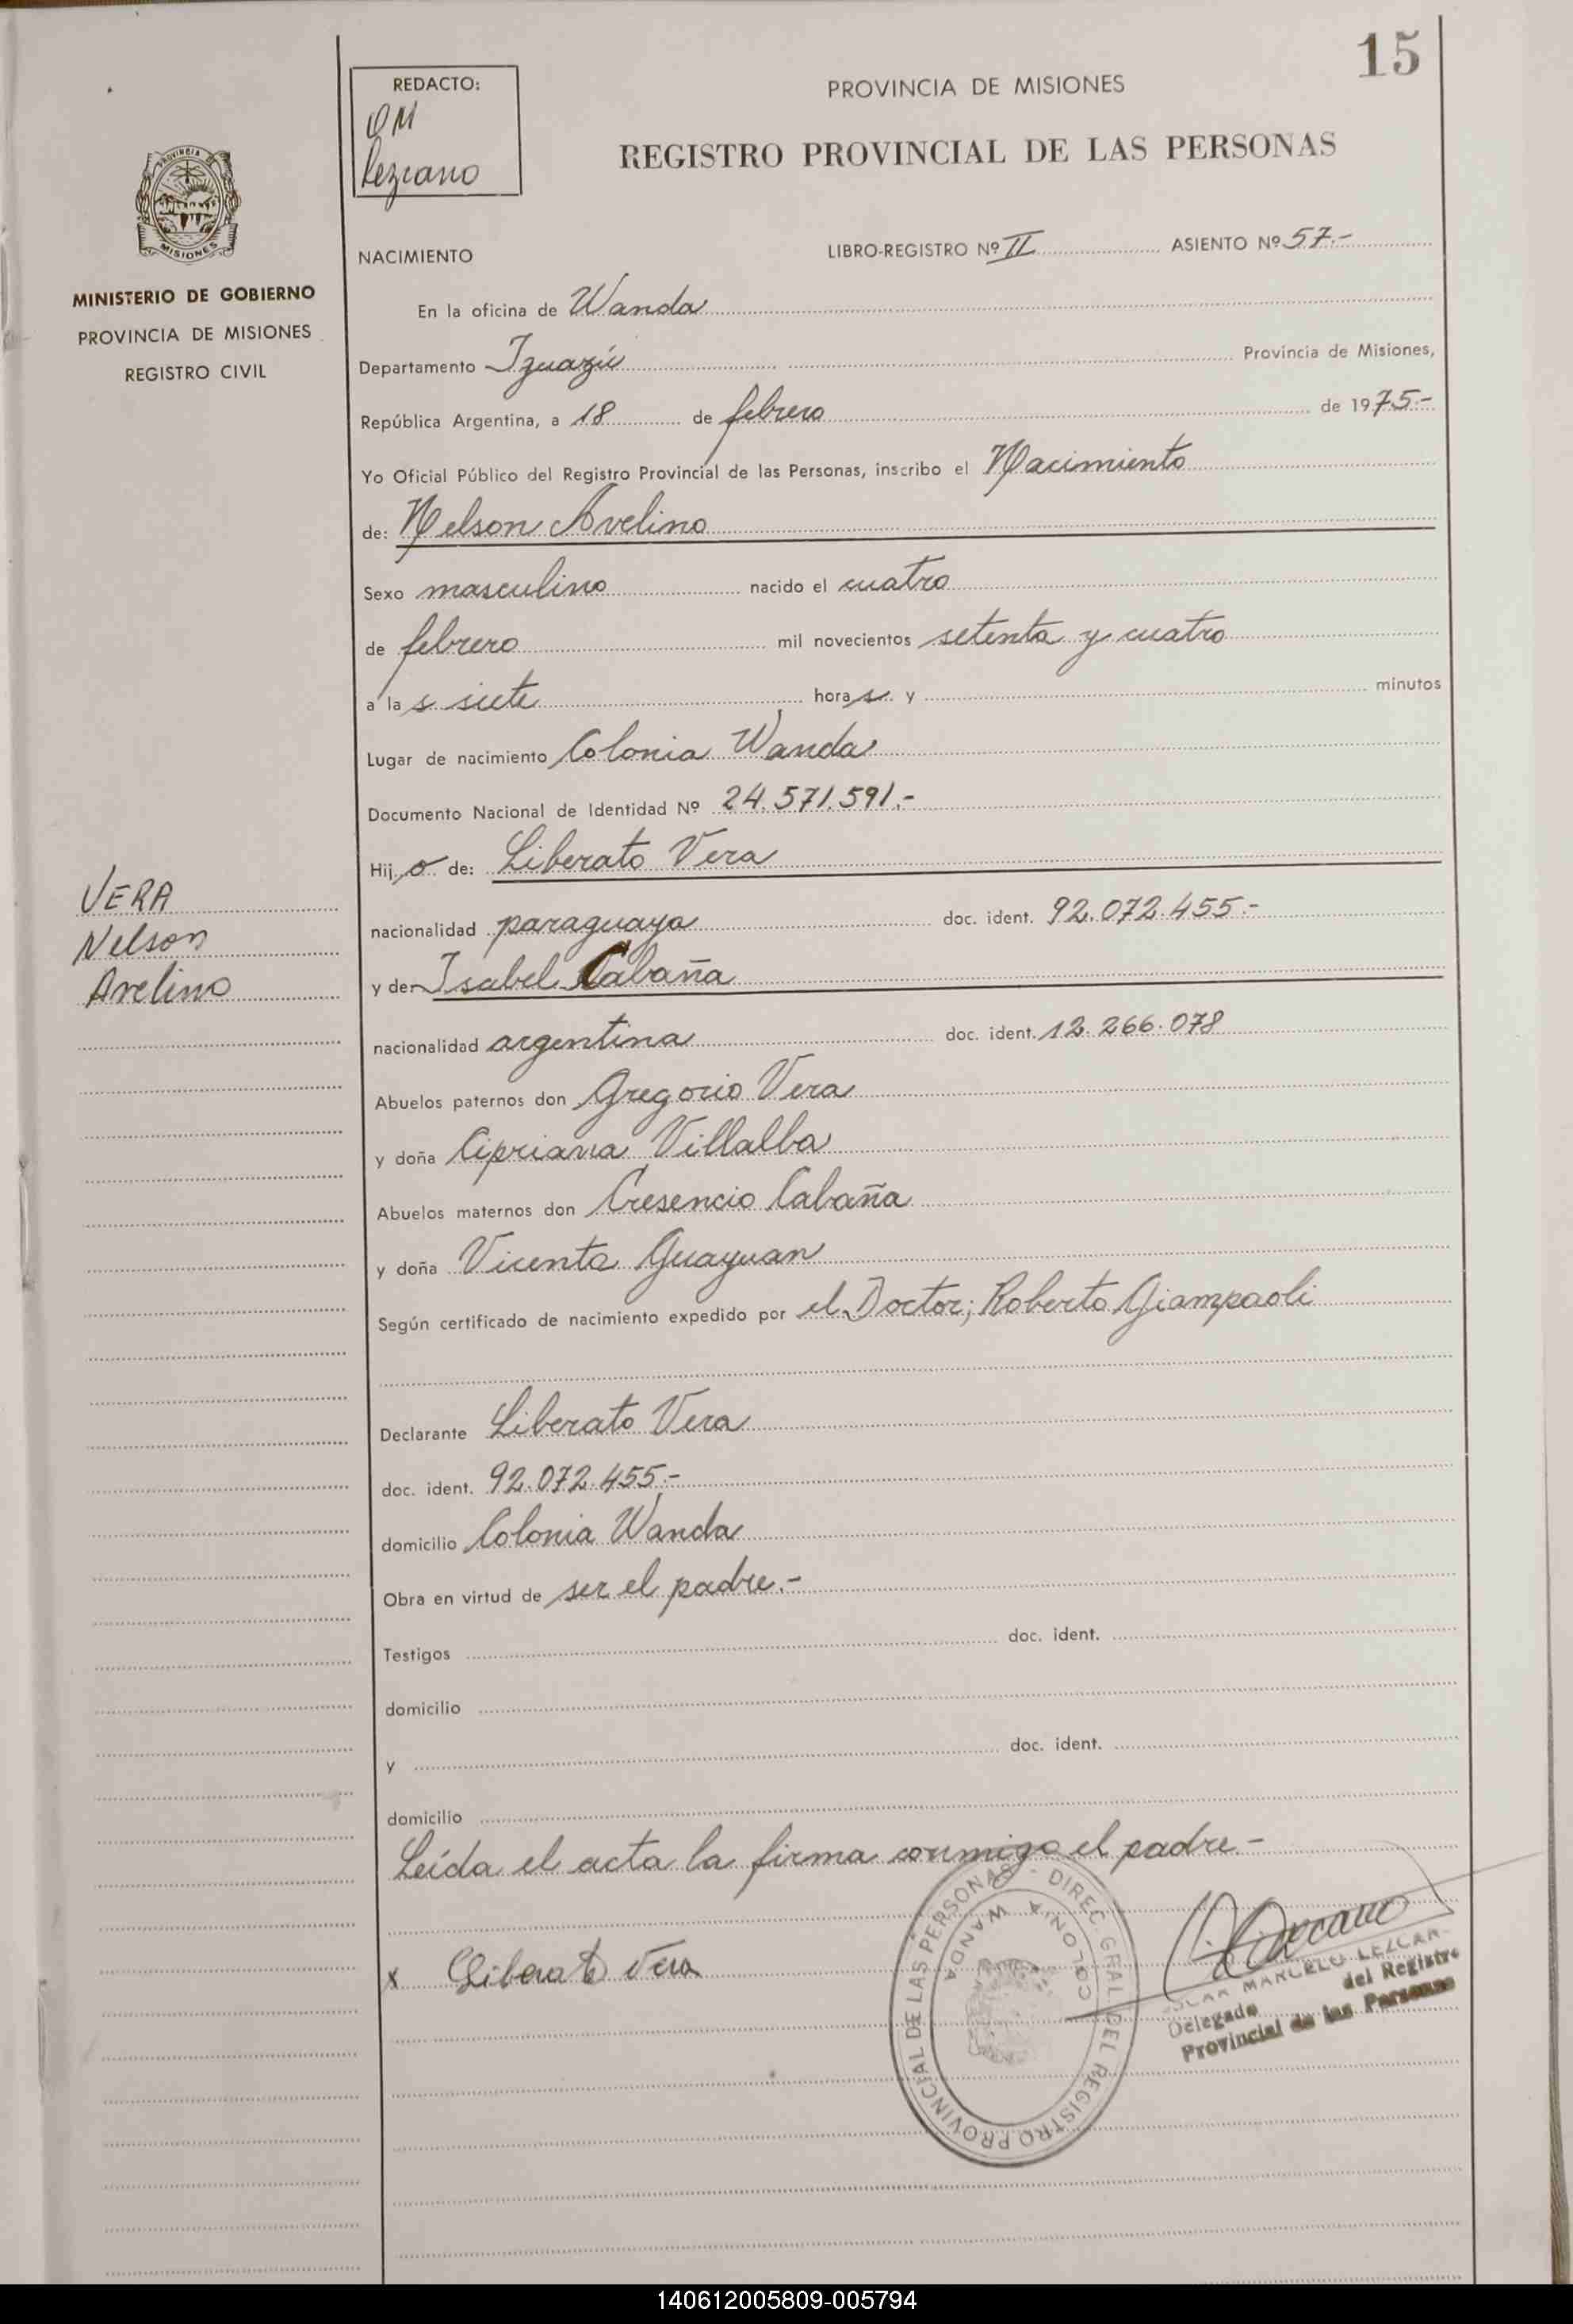 15
REDACTO:
OM
Lezcano
PROVINCIA DE MISIONES
REGISTRO PROVINCIAL DE LAS PERSONAS
PROVINCIA
MISIONES
MINISTERIO DE GOBIERNO
PROVINCIA DE MISIONES
REGISTRO CIVIL
NACIMIENTO LIBRO-REGISTRO Nº II ASIENTO Nº 57.-
En la oficina de Wanda
Departamento Iguazú Provincia de Misiones,
República Argentina, a 18 de febrero de 1975.-
Yo Oficial Público del Registro Provincial de las Personas, inscribo el Nacimiento
de: Nelson Avelino
Sexo masculino nacido el cuatro
de febrero mil novecientos setenta y cuatro
a las siete horas y minutos
Lugar de nacimiento Colonia Wanda
Documento Nacional de Identidad Nº 24.571.591.-
Hijo de: Liberato Vera
VERA
Nelson
Avelino
nacionalidad paraguaya doc. ident. 92.072.455.-
y de Isabel Cabaña
nacionalidad argentina doc. ident. 12.266.078
Abuelos paternos don Gregorio Vera
y doña Cipriana Villalba
Abuelos maternos don Cresencio Cabaña
y doña Vicenta Guayuan
Según certificado de nacimiento expedido por el Doctor; Roberto Giampaoli
Declarante Liberato Vera
doc. ident. 92.072.455.-
domicilio Colonia Wanda
Obra en virtud de ser el padre.-
Testigos doc. ident.
domicilio
y doc. ident.
domicilio
Leída el acta la firma conmigo el padre-
x Liberato Vera
DIREC. GRAL. DEL REGISTRO PROVINCIAL DE LAS PERSONAS -
COLONIA WANDA
OSCAR MARCELO LEZCANO
Delegado del Registro
Provincial de las Personas
140612005809-005794